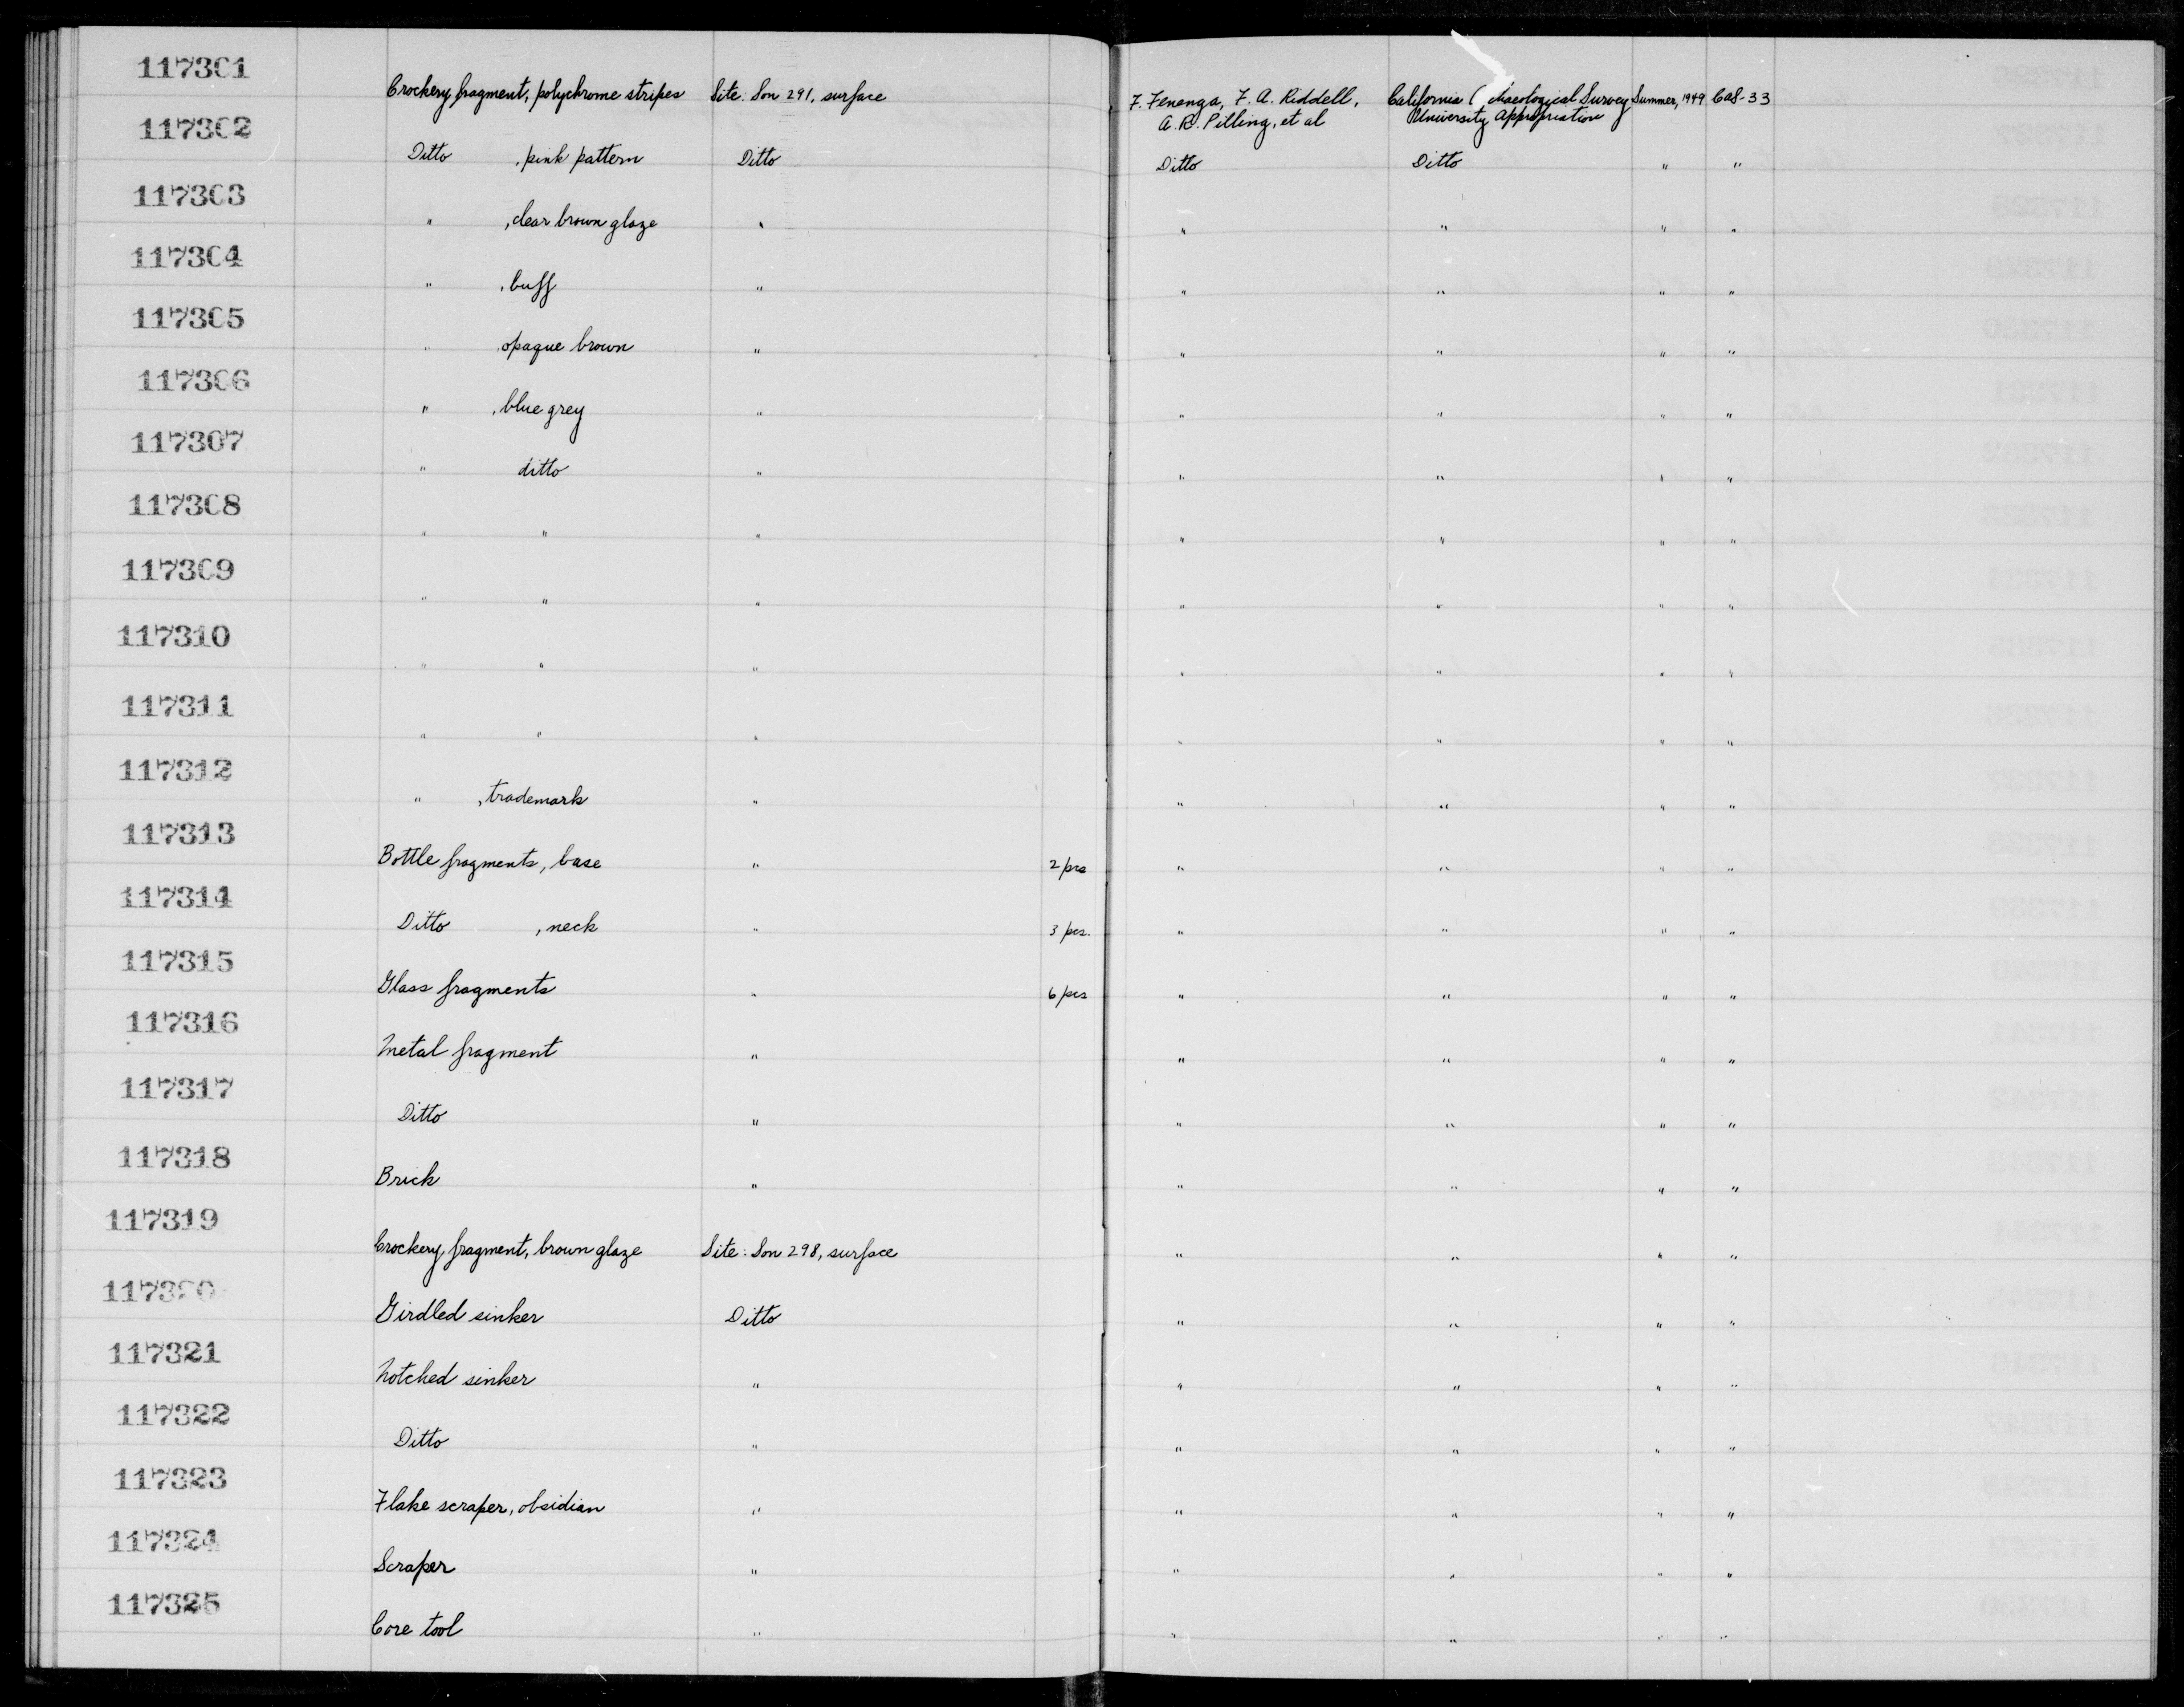 117301
Crockery fragment, polychrome stripes Site: Son 291, surface F. Fenenga, F. A. Riddell, California ( chaeological Survey Summer, 1949 CAS-33
A. R. Pilling, et al University Appropriation
117302
Ditto , pink pattern Ditto Ditto Ditto " "
117303
" , clear brown glaze " " " " "
117304
" , buff " " " " "
117305
" , opaque brown " " " " "
117306
" , blue grey " " " " "
117307
" ditto " " " " "
117308
" " " " " " "
117309
" " " " " " "
117310
" " " " " " "
117311
" " " " " " "
117312
" , trademark " " " " "
117313
Bottle fragments, base " 2 pcs " " " "
117314
Ditto , neck " 3 pcs. " " " "
117315
Glass fragments " 6 pcs " " " "
117316
Metal fragment " " " " "
117317
Ditto " " " " "
117318
Brick " " " " "
117319
Crockery fragment, brown glaze Site: Son 298, surface " " " "
117320
Girdled sinker Ditto " " " "
117321
Notched sinker " " " " "
117322
Ditto " " " " "
117323
Flake scraper, obsidian " " " " "
117324
Scraper " " " " "
117325
Core tool " " " " "